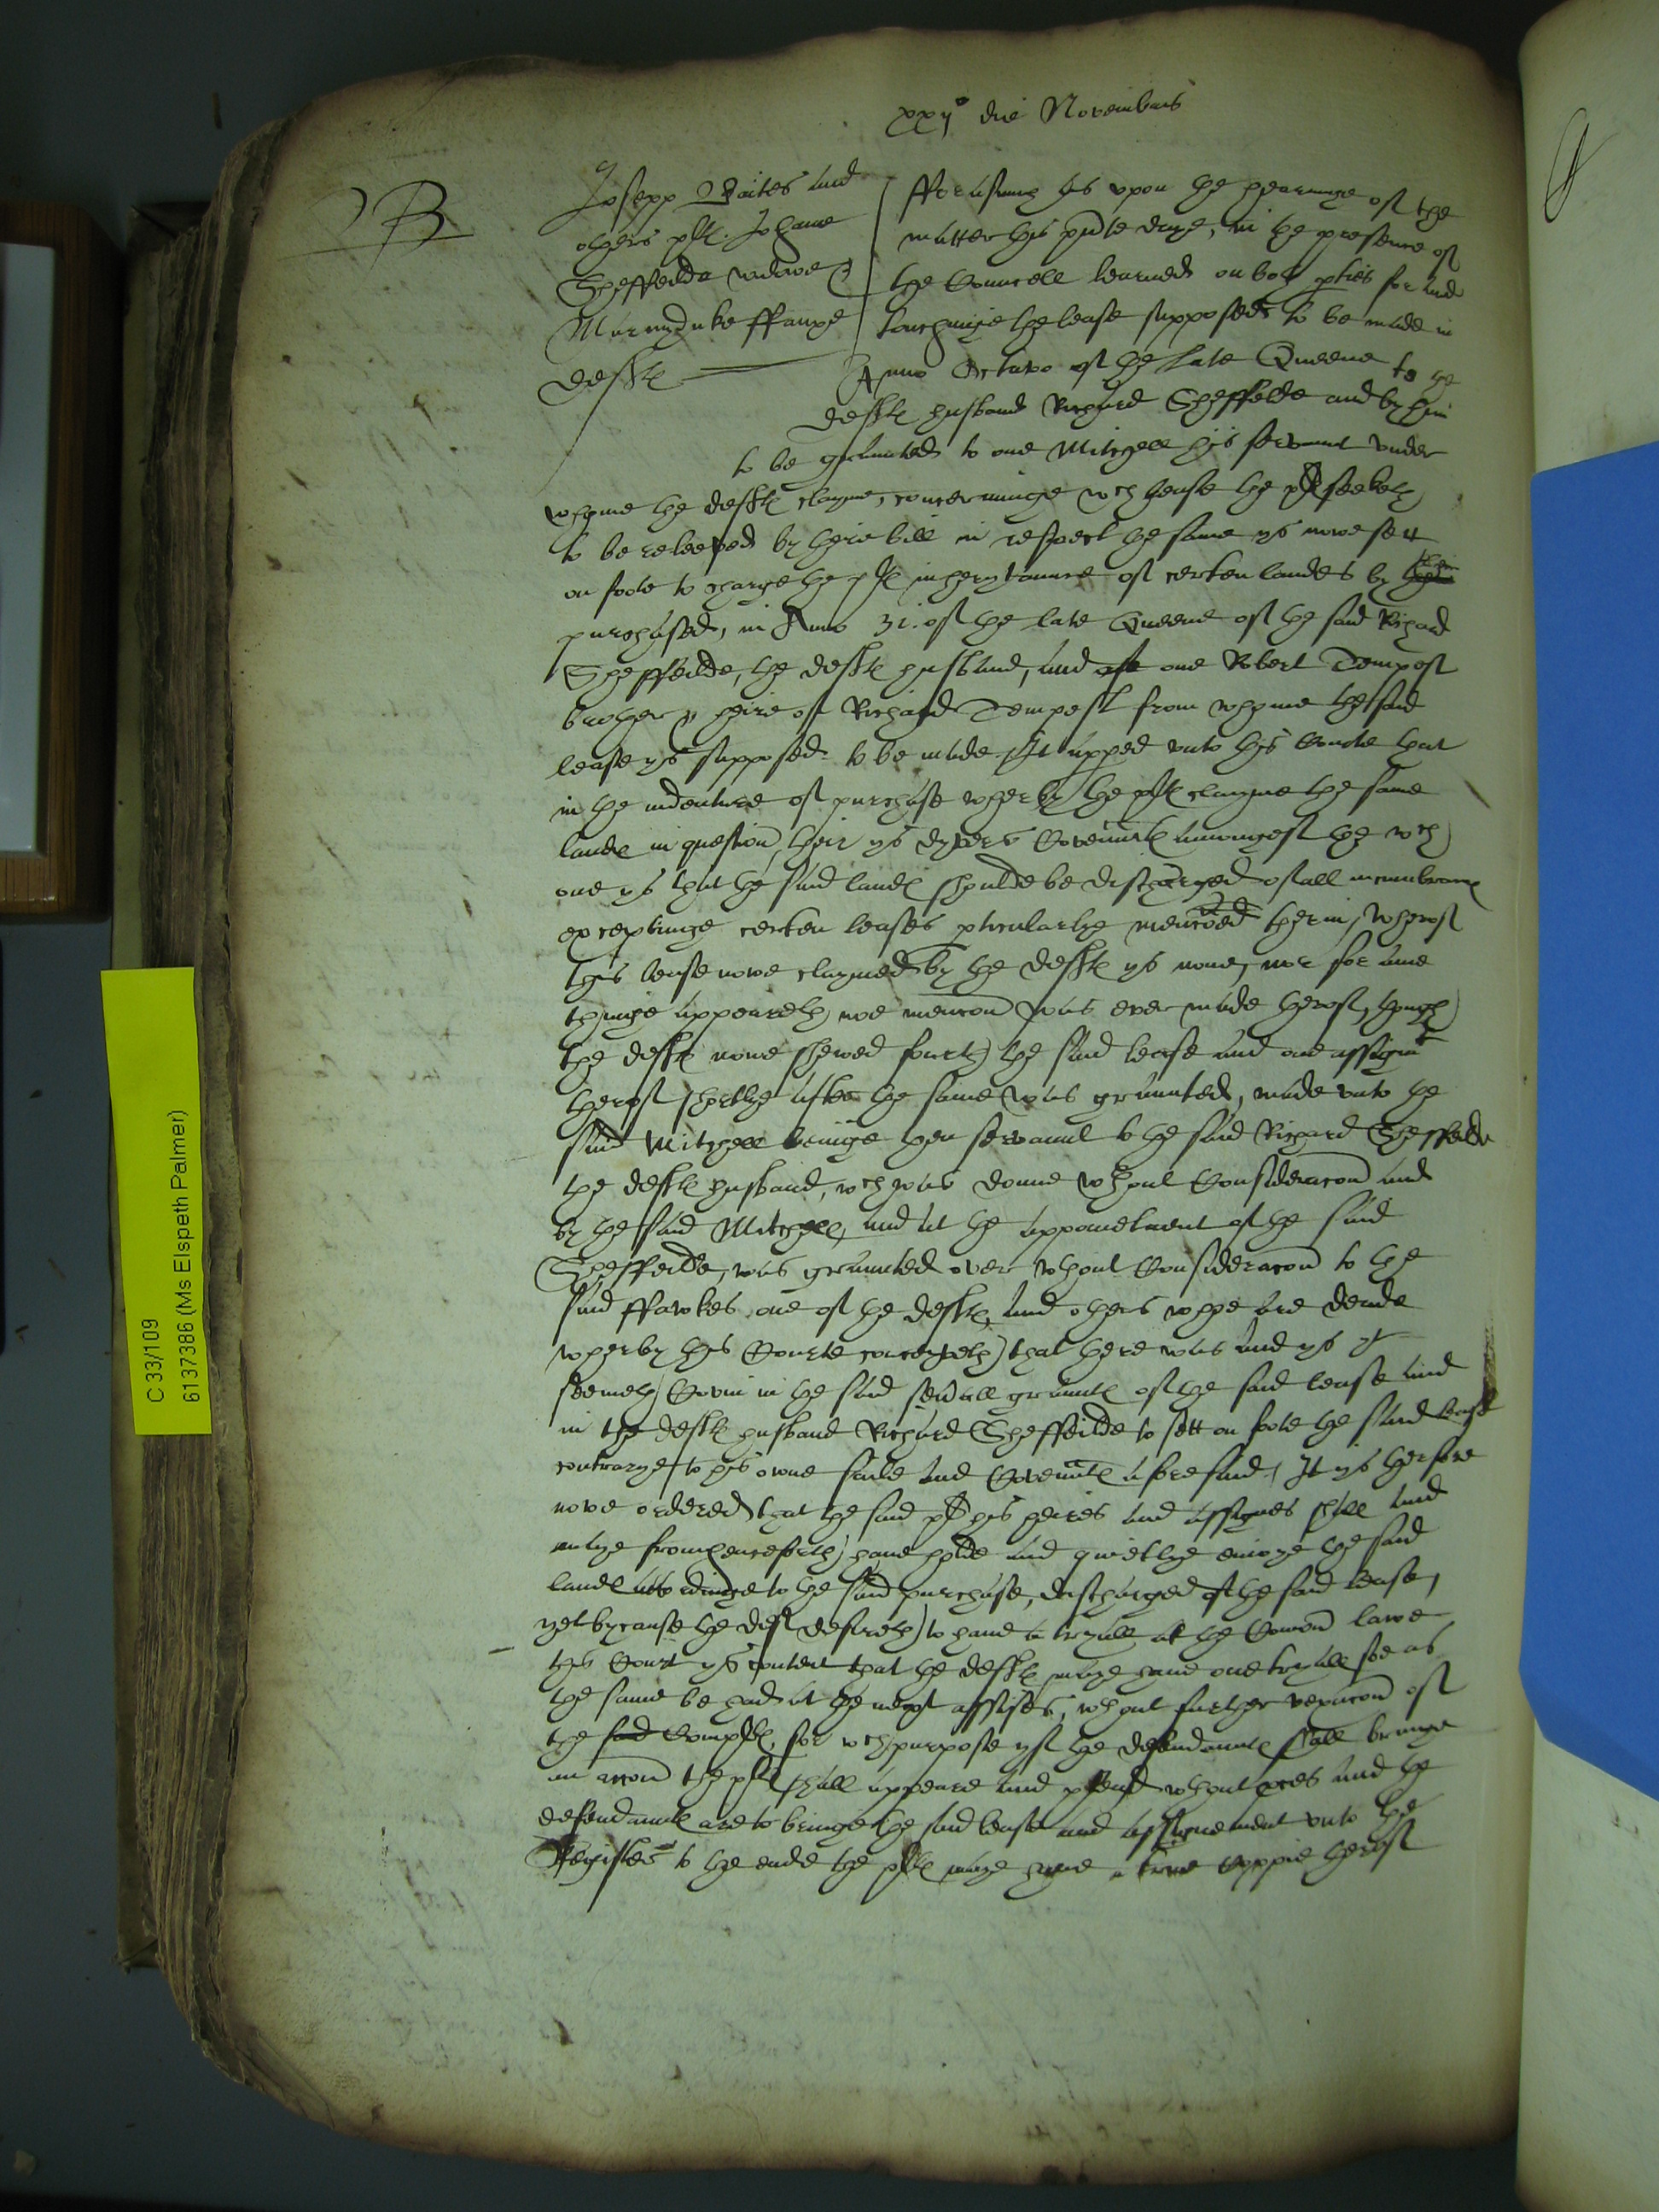 xxij° die Novembris
B
Josepp Waites and
others plt. Johane
Sheffeilde widowe &
Marmaduke ffawxe
deftes
fforasmuch as upon the hearinge of the
matter this p'nte daye, in the presence of
the Councell learned on both p'ties for and
touchinge the lease supposed to be made in
Anno Octavo of the late Queene to the
deftes husband Richard Sheffelde and by him
to be graunted to one Mitchell his servant under
whome the deftes clayme, concerninge wch lease the plt seeketh
to be releeved by theire bill in respect the same ys nowe sett
on foote to charge the pltes inherytaunce of certen landes by them
purchased, in Anno 31. of the late Queene of the said Richard
Sheffeilde, the deftes husband, and of one Robert Tempest
brother & heire of Richard Tempest from whome the said
lease ys supposed to be made. It apped unto this Courte that
in the indenture of purchase wherby the pltes clayme the same
landes in question, their ys dyvers Covenntes amongest the wch
one ys that the said landes shoulde be discharged of all incumbrances
exceptinge certen leases p'ticularlye menc'oed therin, wherof
this lease nowe claymed by the deftes ys none, nor for anie
thinge appeareth noe menc'on was ever made therof, though
the deftes nowe shewed fourth the said lease and one assignmt
therof shortlye after the same was graunted, made unto the
said Mitchell beinge then servaunt to the said Richard Sheffeilde
the deftes husband, wch was donne wthout Considerac'on and
by the said Mitchell, and at the appointment of the said
Sheffeilde, was graunted over wthout Considerac'on to the
said ffawkes one of the deftes, and others whoe are deade
wherby this Courte conceyveth that there was and ys as yt
seemeth Covin in the said sev'all grauntes of the said lease and
in the deftes husband Richard Sheffeilde to sett on foote the said lease
contrarye to his owne sale and Covenntes aforesaid, It ys therfore
nowe ordered that the said plt his heires and assignes shall and
maye fromhenceforth have hold and quietlye enioye the said
landes accordinge to the said purchase, discharged of the said lease,
yet bycause the deft desireth to have a tryall at the Comon lawe
this Court ys content that the deftes maye have one tryall soe as
the same be had at the next assises, wthout further vexac'on of
the said Compltes, for wch purpose yf the defendauntes shall bringe
an acc'on the pltes shall appeare and plead wthout p'ces and the
defendauntes are to bringe the said lease and assignement unto the
Register to the ende the pltes maye have a true coppie therof
C 33/109
6137386 (Ms Elspeth Palmer)